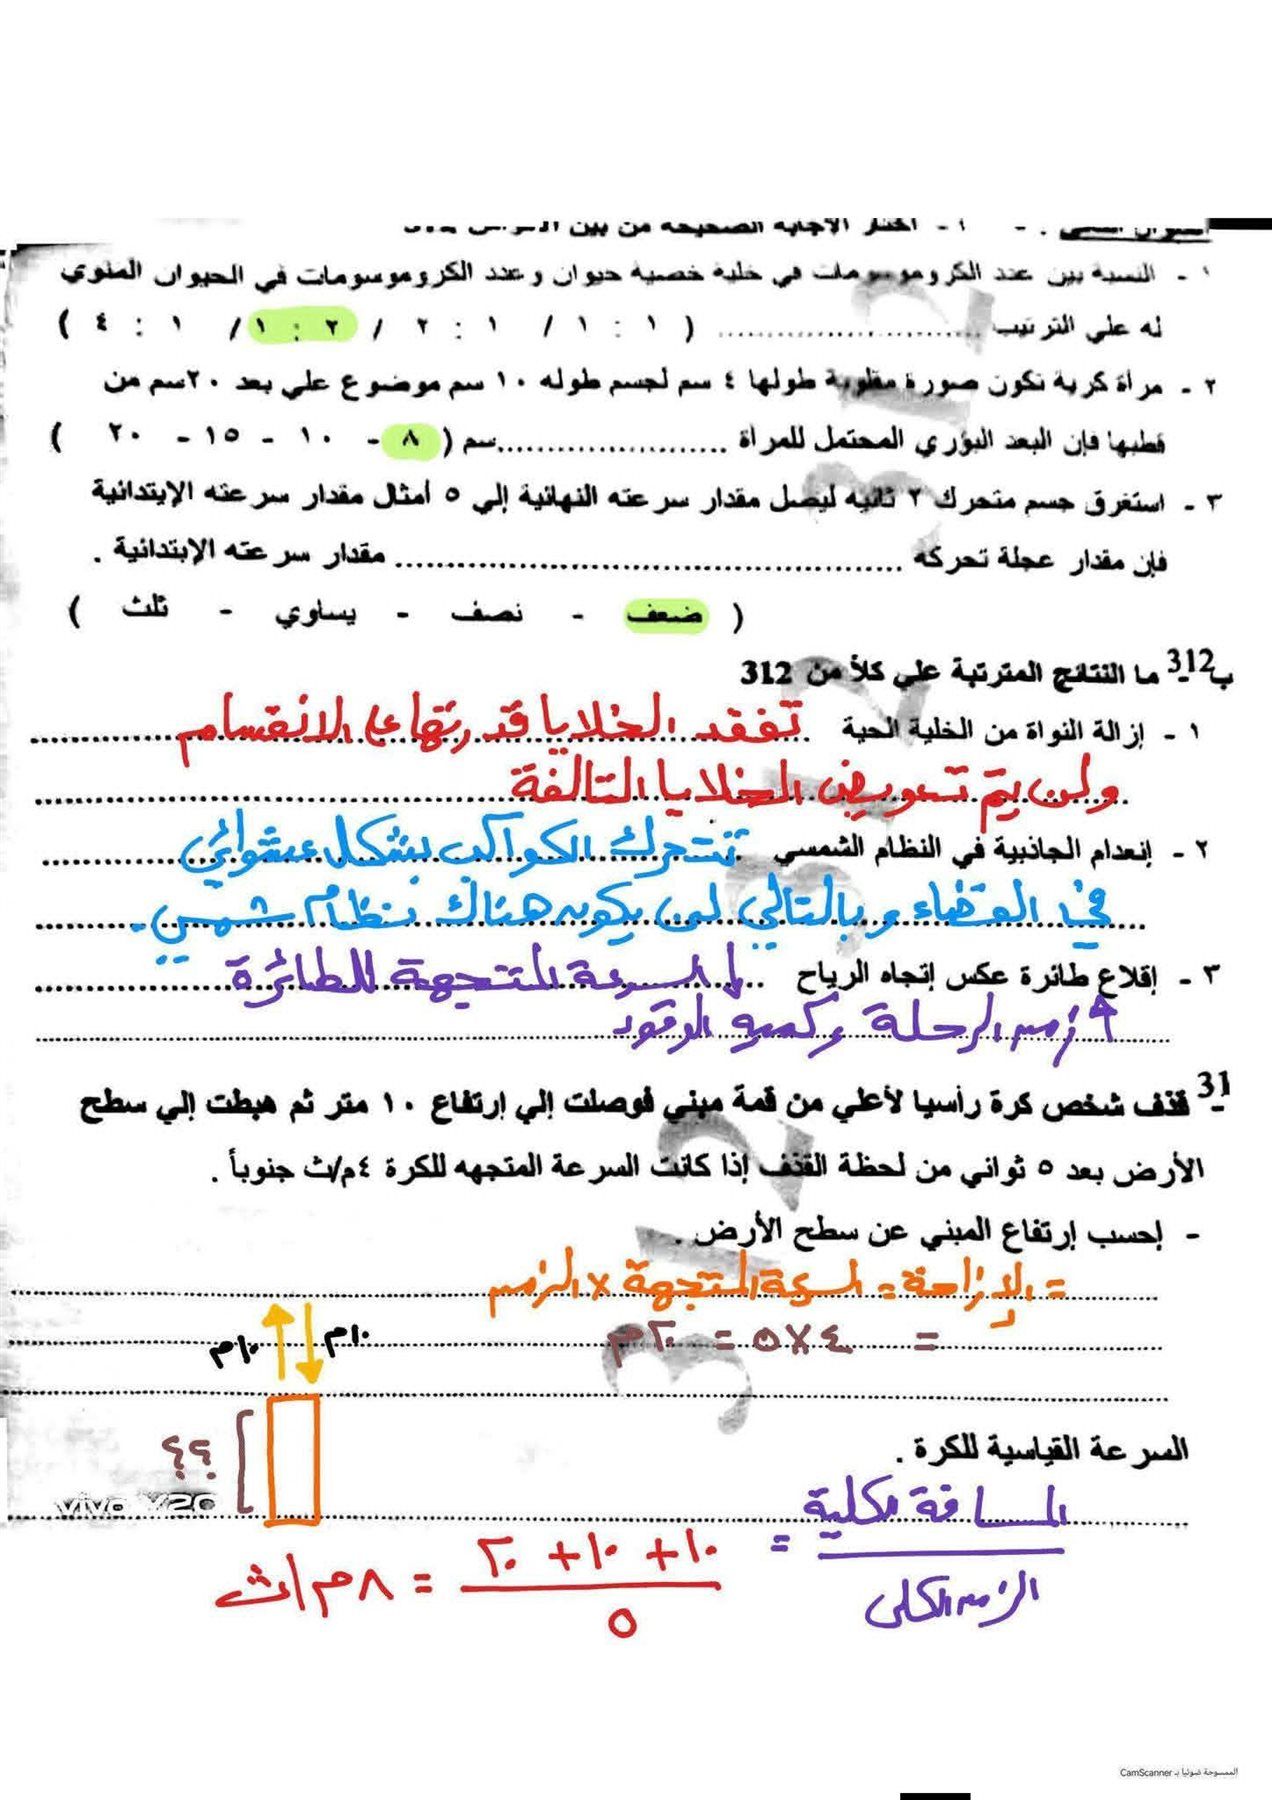 أ - اختار الاجابة الصحيحة من بين
١ - النسبة بين عدد الكروموسومات في خلية خصية حيوان وعدد الكروموسومات في الحيوان المنوي
له علي الترتيب .......................... ( ١ : ١ / ١ : ٢ / ٢ : ١ / ١ : ٤ )
٢ - مرأة كرية تكون صورة مقلوبة طولها ٤ سم لجسم طوله ١٠ سم موضوع علي بعد ٢٠سم من
قطبها فإن البعد البؤري المحتمل للمرأة ..........................سم ( ٨ - ١٠ - ١٥ - ٢٠ )
٣ - استغرق جسم متحرك ٢ ثانيه ليصل مقدار سرعته النهائية إلي ٥ أمثال مقدار سرعته الإبتدائية
فإن مقدار عجلة تحركه .......................................................... مقدار سرعته الإبتدائية .
( ضعف - نصف - يساوي - ثلث )
ب312- ما النتائج المترتبة علي كلاً من 312
١ - إزالة النواة من الخلية الحية تفقد الخلايا قدرتها علي الانقسام
ولن يتم تعويض الخلايا التالفة
٢ - إنعدام الجاذبية في النظام الشمسي تتحرك الكواكب بشكل عشوائي
في الفضاء وبالتالي لن يكون هناك نظام شمسي.
٣ - إقلاع طائرة عكس إتجاه الرياح ↓ السرعة المتجهة للطائرة
↑ زمن الرحلة وكمية الوقود
31- قذف شخص كرة رأسيا لأعلي من قمة مبني فوصلت إلي إرتفاع ١٠ متر ثم هبطت إلي سطح
الأرض بعد ٥ ثواني من لحظة القذف إذا كانت السرعة المتجهه للكرة ٤م/ث جنوباً .
- إحسب إرتفاع المبني عن سطح الأرض .
= الإزاحة = السرعة المتجهة × الزمن
= ٤×٥ = ٢٠م
١٠م ١٠م
السرعة القياسية للكرة .
؟؟
vivo Y20
المسافة الكلية / الزمن الكلي = ١٠ + ١٠ + ٢٠ / ٥ = ٨م/ث
الممسوحة ضوئيا بـ CamScanner